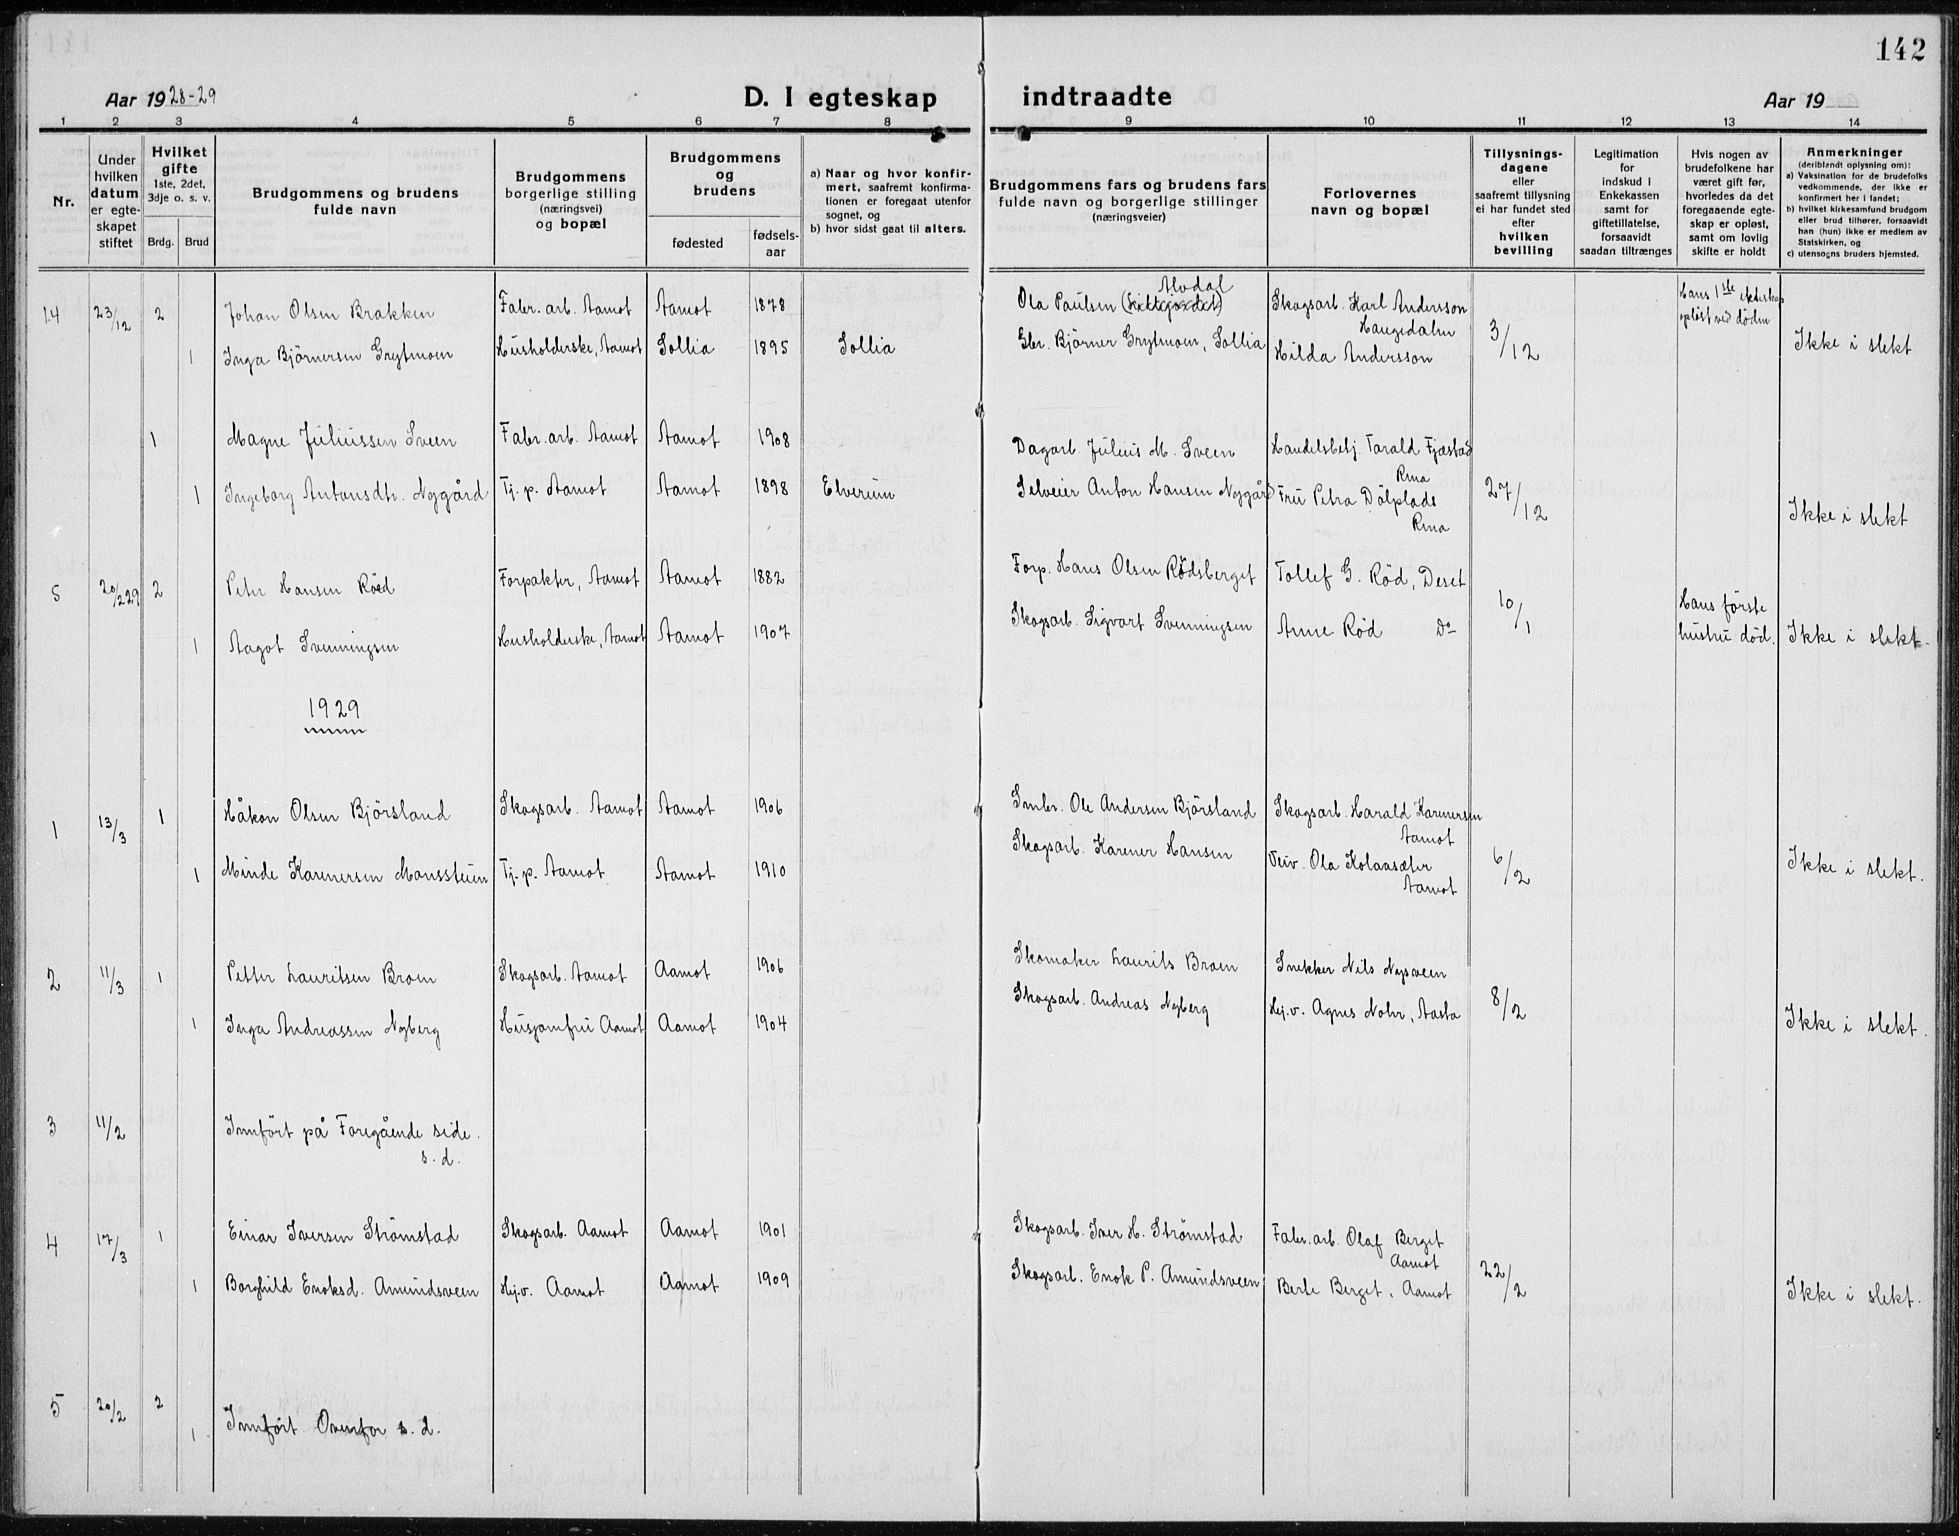 142
Aar 1928-29
D. I egteskap indtraadte
Aar 19
1 2 3 4 5 6 7 8 9 10 11 12 13 14
Nr.
Under
hvilken
datum
er egte-
skapet
stiftet
Hvilket
gifte
1ste, 2det,
3dje o. s. v.
Brdg. Brud
Brudgommens og brudens
fulde navn
Brudgommens
borgerlige stilling
(næringsvei)
og bopæl
Brudgommens
og
brudens
fødested
fødsels-
aar
a) Naar og hvor konfir-
mert, saafremt konfirma-
tionen er foregaat utenfor
sognet, og
b) hvor sidst gaat til alters.
Brudgommens fars og brudens fars
fulde navn og borgerlige stillinger
(næringsveier)
Forlovernes
navn og bopæl
Tillysnings-
dagene
eller
saafremt tillysning
ei har fundet sted
efter
hvilken
bevilling
Legitimation
for
indskud i
Enkekassen
samt for
giftetillatelse,
forsaavidt
saadan tiltrænges
Hvis nogen av
brudefolkene har
været gift før,
hvorledes da det
foregaaende egte-
skap er opløst,
samt om lovlig
skifte er holdt
Anmerkninger
(deriblandt oplysning om):
a) Vaksination for de brudefolks
vedkommende, der ikke er
konfirmert her i landet;
b) hvilket kirkesamfund brudgom
eller brud tilhører, forsaavidt
han (hun) ikke er medlem av
Statskirken, og
c) utensogns bruders hjemsted.
14 23/12 2 Johan Olsen Brakken Fabr. arb. Aamot Aamot 1878 Ola Paulsen Alvdal Skogsarb. Karl Andersson Haugedalen Hans 1ste ekteskap opløst ved døden
1 Inga Björnersen Grytmoen Husholderske, Aamot Sollia 1895 Sollia Gbr. Björner Grytmoen, Sollia Hilda Andersson 3/12 Ikke i slekt
1 Magne Juliussen Sveen Fabr. arb. Aamot Aamot 1908 Dagarb. Julius M. Sveen Handelsbetj. Tarald Fjæstad Rena
1 Ingeborg Antonsdtr. Nygård Tj. p. Aamot Aamot 1898 Elverum Selveier Anton Hansen Nygård Fru Petra Dölplads Rena 27/12 Ikke i slekt
5 20/2 29 2 Peter Hansen Röed Forpakter, Aamot Aamot 1882 Forp. Hans Olsen Rödsberget Tollef G. Rød, Deset
1 Aagot Svenningsen Husholderske, Aamot Aamot 1907 Skogsarb. Sigvart Svenningsen Anne Rød Do 10/1 Hans første hustru död. Ikke i slekt.
1929
1 13/3 1 Håkon Olsen Bjørsland Skogsarb. Aamot Aamot 1906 Smbr. Ole Andersen Bjørsland Skogsarb. Harald Karenersen Aamot
1 Minde Karenersen Monssteien Tj. p. Aamot Aamot 1910 Skogsarb. Karener Hansen Veiv. Ola Kolaasæter Aamot 6/2 Ikke i slekt.
2 11/3 1 Petter Lauritsen Broen Skogsarb. Aamot Aamot 1906 Skomaker Laurits Broen Snekker Nils Nysveen
1 Inga Andreassen Nyberg Husjomfru Aamot Aamot 1904 Skogsarb. Andreas Nyberg Hj.v. Agnes Nohr, Aasta 8/2 Ikke i slekt.
3 11/2 Innført på Foregående side. s. d.
4 17/3 1 Einar Iversen Strömstad Skogsarb. Aamot Aamot 1901 Skogsarb. Iver H. Strømstad Fabr. arb. Olaf Berget Aamot
1 Borghild Enoksd. Amundsveen Hj.v. Aamot Aamot 1909 Skogsarb. Enok P. Amundsveen Berte Berget, Aamot 22/2 Ikke i slekt.
5 20/2 2 1 Innført Ovenfor s. d.